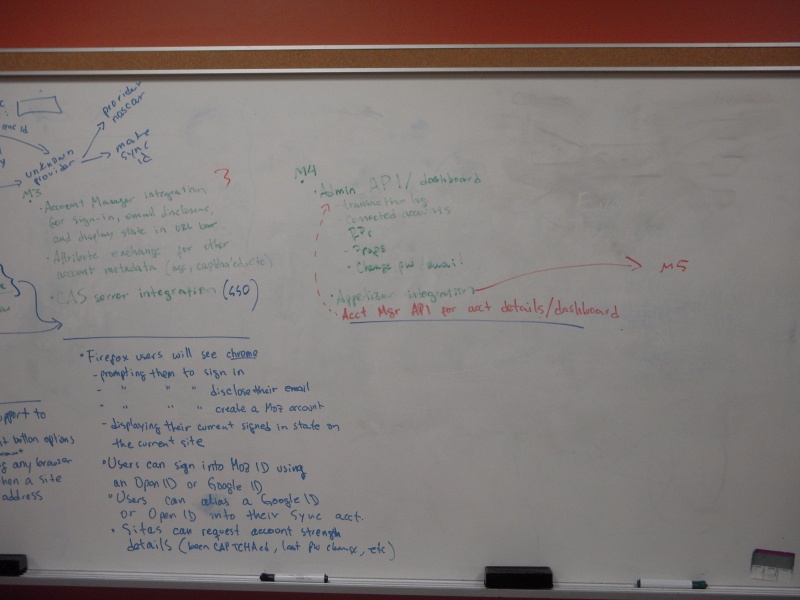 provider
nascar
make
sync
id
unknown
provider
M3
3
• Account Manager integration
for sign-in, email disclosure,
and display state in URL bar
• Attribute exchange for other
account metadata
• CAS server integration (450)
M4
• Admin API/dashboard
- transaction log
- connected accounts
- Change pw/email
• Appetizer integration
M5
• Acct Mgr API for acct details/dashboard
• Firefox users will see chrome
- prompting them to sign in
- " " " disclose their email
- " " " create a Moz account
- displaying their current signed in state on
the current site
• Users can sign into Moz ID using
an Open ID or Google ID
• Users can alias a Google ID
or Open ID into their Sync acct.
• Sites can request account strength
details (been CAPTCHAed, last pw change, etc)
button options
any browser
a site
address